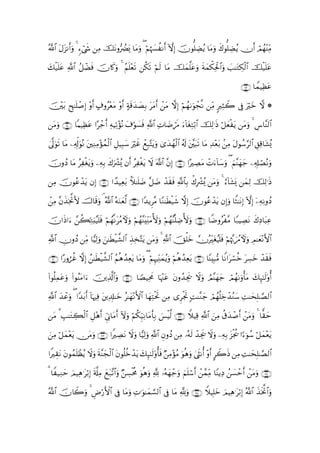 مِّنْهُمْ أَن يُضِلُّوكَ وَمَا يُضِلُّونَ إِلَّآ أَنفُسَهُمْ ۖ وَمَا يَضُرُّونَكَ مِن شَىْءٍ ۚ وَأَنزَلَ ٱللَّهُ
عَلَيْكَ ٱلْكِتَـٰبَ وَٱلْحِكْمَةَ وَعَلَّمَكَ مَا لَمْ تَكُن تَعْلَمُ ۚ وَكَانَ فَضْلُ ٱللَّهِ عَلَيْكَ
عَظِيمًا ﴿١١٣﴾
۞ لَّا خَيْرَ فِى كَثِيرٍ مِّن نَّجْوَىٰهُمْ إِلَّا مَنْ أَمَرَ بِصَدَقَةٍ أَوْ مَعْرُوفٍ أَوْ إِصْلَـٰحٍۭ بَيْنَ
ٱلنَّاسِ ۚ وَمَن يَفْعَلْ ذَٰلِكَ ٱبْتِغَآءَ مَرْضَاتِ ٱللَّهِ فَسَوْفَ نُؤْتِيهِ أَجْرًا عَظِيمًا ﴿١١٤﴾ وَمَن
يُشَاقِقِ ٱلرَّسُولَ مِنۢ بَعْدِ مَا تَبَيَّنَ لَهُ ٱلْهُدَىٰ وَيَتَّبِعْ غَيْرَ سَبِيلِ ٱلْمُؤْمِنِينَ نُوَلِّهِۦ مَا تَوَلَّىٰ
وَنُصْلِهِۦ جَهَنَّمَ ۖ وَسَآءَتْ مَصِيرًا ﴿١١٥﴾ إِنَّ ٱللَّهَ لَا يَغْفِرُ أَن يُشْرَكَ بِهِۦ وَيَغْفِرُ مَا دُونَ
ذَٰلِكَ لِمَن يَشَآءُ ۚ وَمَن يُشْرِكْ بِٱللَّهِ فَقَدْ ضَلَّ ضَلَـٰلًۢا بَعِيدًا ﴿١١٦﴾ إِن يَدْعُونَ مِن
دُونِهِۦٓ إِلَّآ إِنَـٰثًا وَإِن يَدْعُونَ إِلَّا شَيْطَـٰنًا مَّرِيدًا ﴿١١٧﴾ لَّعَنَهُ ٱللَّهُ ۘ وَقَالَ لَأَتَّخِذَنَّ مِنْ
عِبَادِكَ نَصِيبًا مَّفْرُوضًا ﴿١١٨﴾ وَلَأُضِلَّنَّهُمْ وَلَأُمَنِّيَنَّهُمْ وَلَـَٔامُرَنَّهُمْ فَلَيُبَتِّكُنَّ ءَاذَانَ
ٱلْأَنْعَـٰمِ وَلَـَٔامُرَنَّهُمْ فَلَيُغَيِّرُنَّ خَلْقَ ٱللَّهِ ۚ وَمَن يَتَّخِذِ ٱلشَّيْطَـٰنَ وَلِيًّا مِّن دُونِ ٱللَّهِ
فَقَدْ خَسِرَ خُسْرَانًا مُّبِينًا ﴿١١٩﴾ يَعِدُهُمْ وَيُمَنِّيهِمْ ۖ وَمَا يَعِدُهُمُ ٱلشَّيْطَـٰنُ إِلَّا غُرُورًا ﴿١٢٠﴾
أُو۟لَـٰٓئِكَ مَأْوَىٰهُمْ جَهَنَّمُ وَلَا يَجِدُونَ عَنْهَا مَحِيصًا ﴿١٢١﴾ وَٱلَّذِينَ ءَامَنُوا۟ وَعَمِلُوا۟
ٱلصَّـٰلِحَـٰتِ سَنُدْخِلُهُمْ جَنَّـٰتٍ تَجْرِى مِن تَحْتِهَا ٱلْأَنْهَـٰرُ خَـٰلِدِينَ فِيهَآ أَبَدًا ۖ وَعْدَ ٱللَّهِ
حَقًّا ۚ وَمَنْ أَصْدَقُ مِنَ ٱللَّهِ قِيلًا ﴿١٢٢﴾ لَّيْسَ بِأَمَانِيِّكُمْ وَلَآ أَمَانِىِّ أَهْلِ ٱلْكِتَـٰبِ ۗ مَن
يَعْمَلْ سُوٓءًا يُجْزَ بِهِۦ وَلَا يَجِدْ لَهُۥ مِن دُونِ ٱللَّهِ وَلِيًّا وَلَا نَصِيرًا ﴿١٢٣﴾ وَمَن يَعْمَلْ مِنَ
ٱلصَّـٰلِحَـٰتِ مِن ذَكَرٍ أَوْ أُنثَىٰ وَهُوَ مُؤْمِنٌ فَأُو۟لَـٰٓئِكَ يَدْخُلُونَ ٱلْجَنَّةَ وَلَا يُظْلَمُونَ نَقِيرًا
﴿١٢٤﴾ وَمَنْ أَحْسَنُ دِينًا مِّمَّنْ أَسْلَمَ وَجْهَهُۥ لِلَّهِ وَهُوَ مُحْسِنٌ وَٱتَّبَعَ مِلَّةَ إِبْرَٰهِيمَ حَنِيفًا ۗ
وَٱتَّخَذَ ٱللَّهُ إِبْرَٰهِيمَ خَلِيلًا ﴿١٢٥﴾ وَلِلَّهِ مَا فِى ٱلسَّمَـٰوَٰتِ وَمَا فِى ٱلْأَرْضِ ۚ وَكَانَ ٱللَّهُ